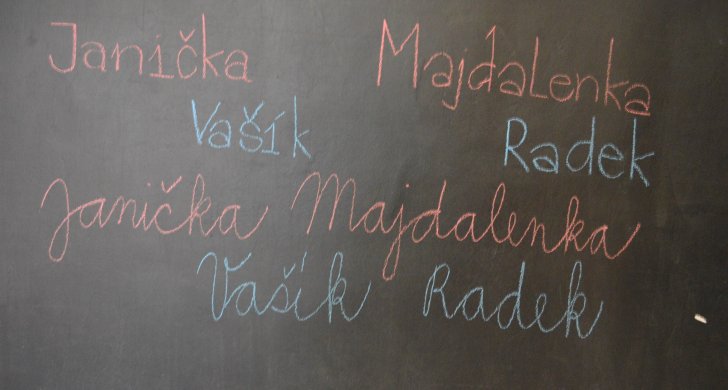 Janička Majdalenka
Vašík Radek
Janička Majdalenka
Vašík Radek